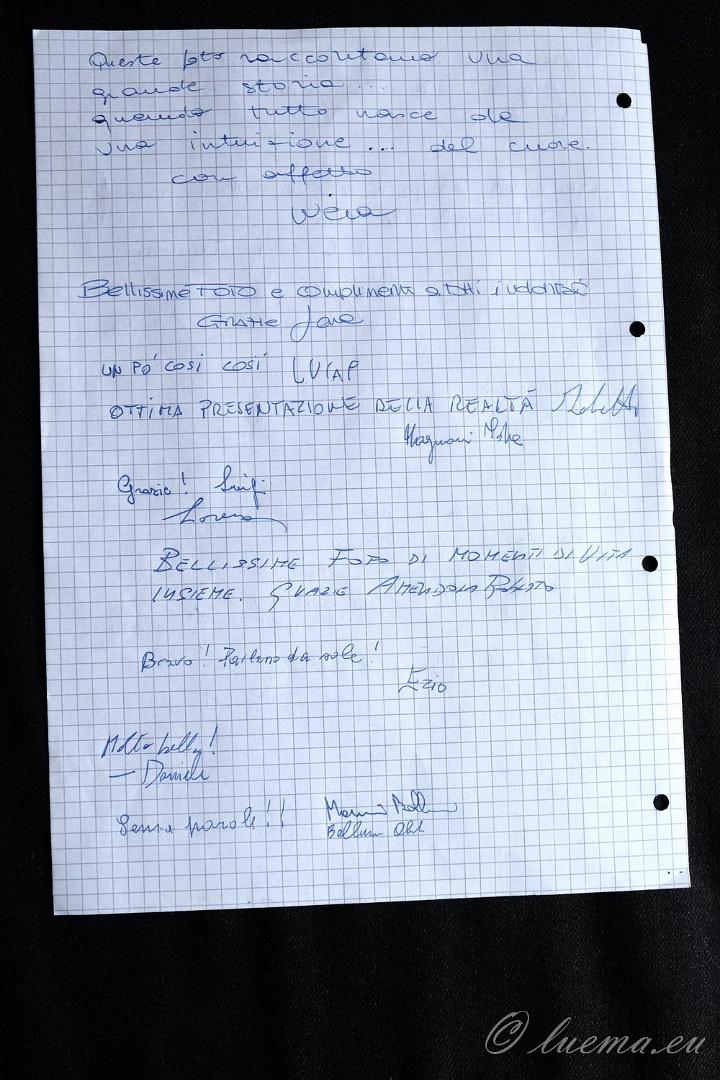 Queste foto raccontano una
grande storia...
quando tutto nasce da
una intuizione... del cuore.
con affetto
Wéra
Bellissime FOTO e complimenti a tutti i
GRAZIE
UN PÓ COSÍ COSÍ LUCAP
OTTIMA PRESENTAZIONE DELLA REALTÁ
Magnani
Grazie! Luigi
Lorenzo
BELLISSIME FOTO DI MOMENTI DI VITA
INSIEME. GRAZIE AMENDOLA ROBERTO
Bravo! Parlano da sole!
Ezio
Molto belle!
— Daniele
Senza parole!!
© luema.eu